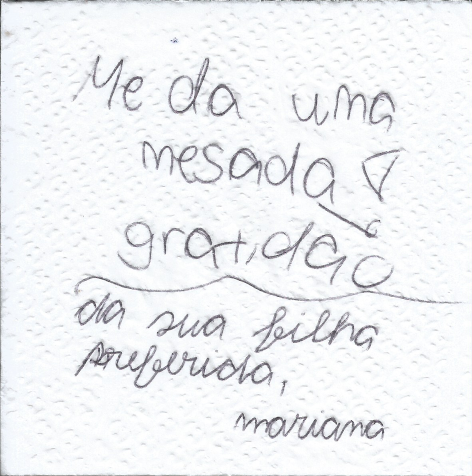 Me da uma
mesada!
gratidão
da sua filha
preferida,
mariana